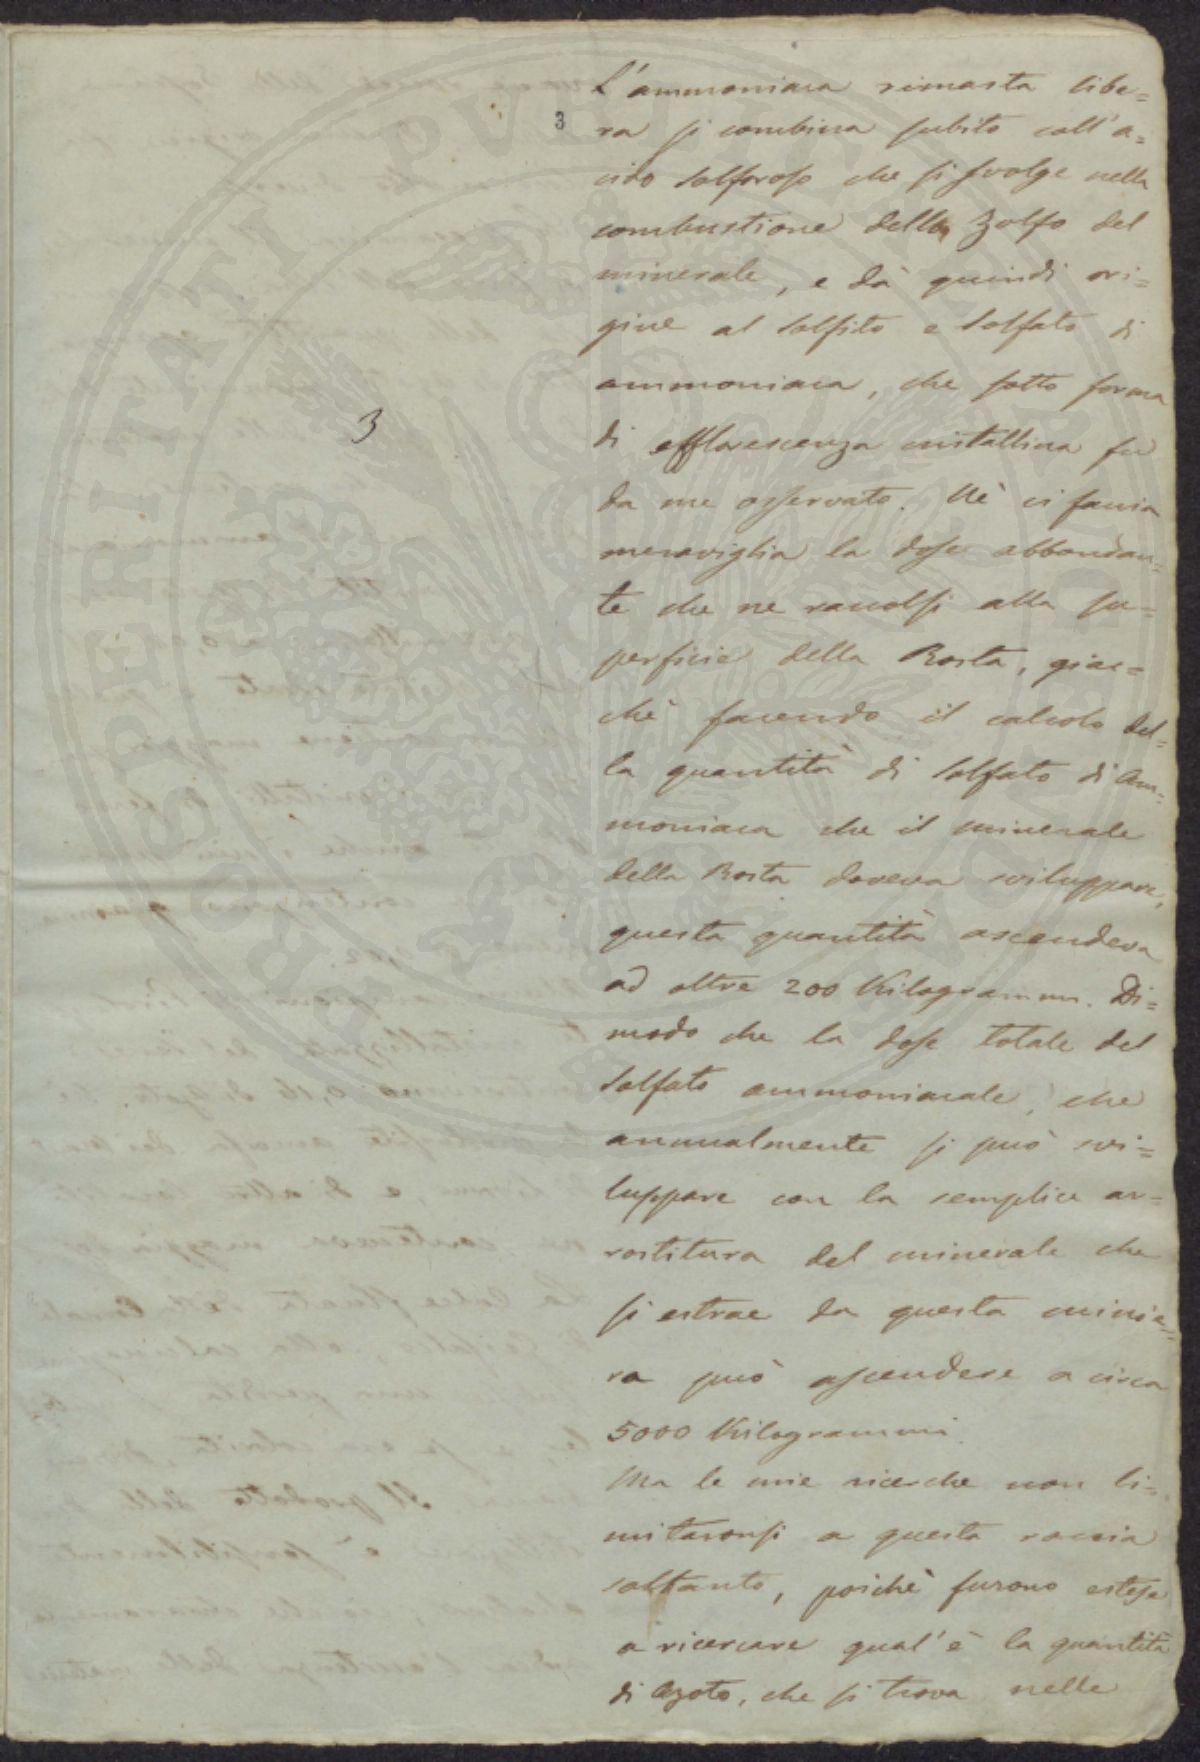 3
3
L'ammoniaca rimasta libe=
ra si combina subito coll'a=
cido solforoso che si svolge nella
combustione dello Zolfo del
minerale, e dà quindi ori=
gine al solfito e solfato di
ammoniaca, che sotto forma
di efflorescenza cristallina fu
da me osservato. Nè ci faccia
meraviglia la dose abbondan=
te che ne raccolsi alla su=
perficie della Rosta, giac=
chè facendo il calcolo del=
la quantità di solfato di Am=
moniaca che il minerale
della Rosta doveva sviluppare,
questa quantità ascendeva
ad oltre 200 Kilogrammi. Di=
modo che la dose totale del
solfato ammoniacale, che
annualmente si può svi=
luppare con la semplice ar=
rostitura del minerale che
si estrae da questa minie=
ra può ascendere a circa
5000 Kilogrammi
Ma le mie ricerche non li=
mitaronsi a questa roccia
soltanto, poichè furono estese
a ricercare qual'è la quantità
di Azoto, che si trova nelle
PROSPERITATI PVBLICAE AVGENDAE